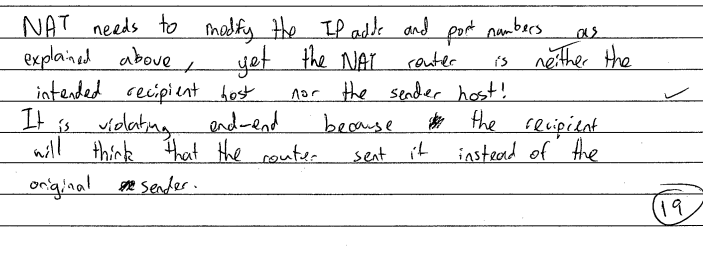 NAT needs to modify the IP addr and port numbers as
explained above, yet the NAT router is neither the
intended recipient host nor the sender host!
It is violating end-end because the recipient
will think that the router sent it instead of the
original sender.
19